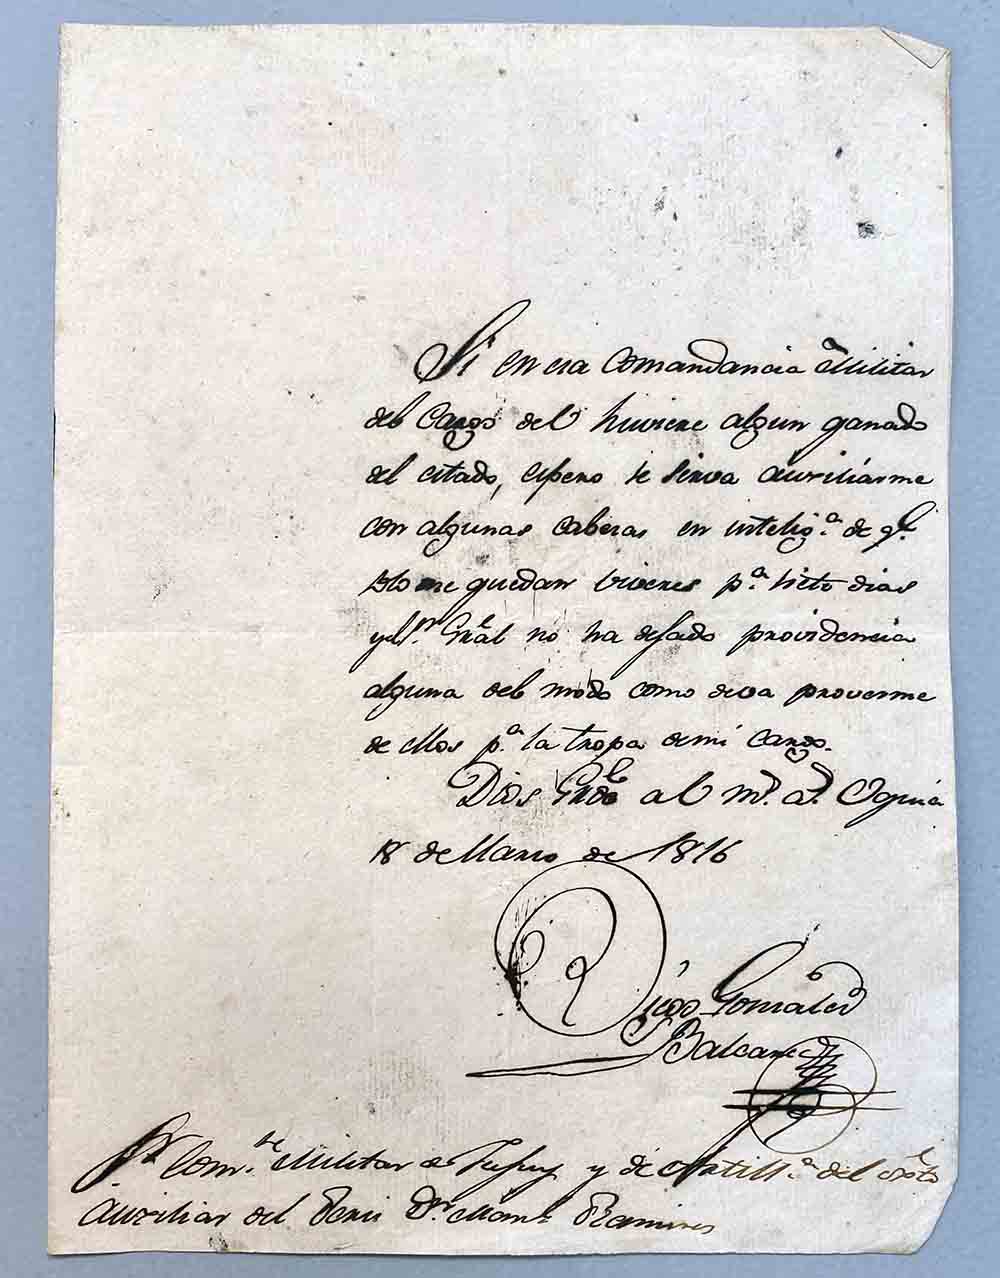 Si en esa Comandancia Militar
del Cargo del huviere algun ganado
del citado, espero se sirva auxiliarme
con algunas cabezas en inteligª. de qᵉ.
solo me quedan viveres pª. siete dias
y el Sʳ. Gral no ha dejado providencia
alguna del modo como deva proverme
de ellos pª. la tropa de mi cargo.
Dios Gudᵉ al mˢ. aˢ.
18 de Marzo de 1816
Diego Gonzales
Balcarce
Sʳ. Comᵗᵉ. Militar de Jujuy y de Artillª. del Exto
Auxiliar del Perú Dⁿ. Manˡ. Ramires